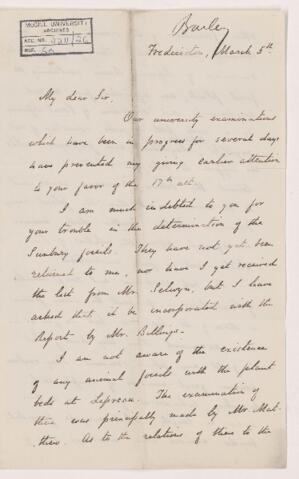 McGILL UNIVERSITY
ARCHIVES
ACC. NO.
REF.
Bailey
Fredericton, March 5th
My dear Sir,
Our university examinations
which have been in progress for several days
have prevented my giving earlier attention
to your favor of the 17th ult.
I am much indebted to you for
your trouble in the determination of the
Sunbury fossils. They have not yet been
returned to me, nor have I yet received
the list from Mr. Selwyn, but I have
asked that it be incorporated with the
Report by Mr. Billings.
I am not aware of the existence
of any animal fossils with the plant
beds at Lepreau. The examination of
these was principally made by Mr. Mat-
thew. As to the relations of these to the